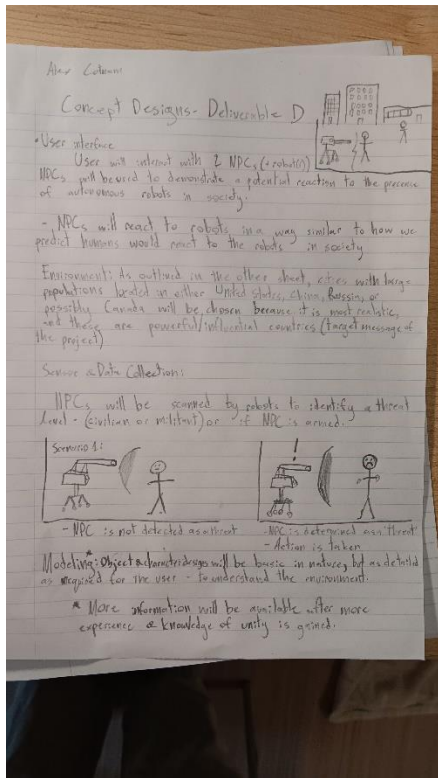 Alex
Concept Designs - Deliverable D
• User interface
User will interact with 2 NPCs, (+ robot(s))
NPCs will be used to demonstrate a potential reaction to the presence
of autonomous robots in society.
- NPCs will react to robots in a way similar to how we
predict humans would react to the robots in society
Environment: As outlined in the other sheet, cities with large
populations located in either United States, China, Russia, or
possibly Canada will be chosen because it is most realistic,
and these are powerful/influential countries (target message of
the project)
Sensor & Data Collection:
NPCs will be scanned by robots to identify a threat
level - (civilian or militant) or if NPC is armed.
Scenario 1:
!
- NPC is not detected as a threat
- NPC is determined as a 'threat'
- Action is taken
Modeling:* Object & character designs will be basic in nature, but as detailed
as required for the user - to understand the environment.
* More information will be available after more
experience & knowledge of unity is gained.